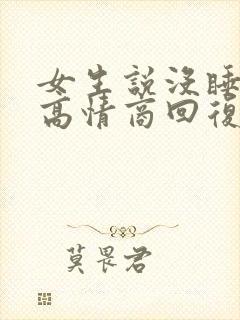 女生說沒睡
高情商回復
莫畏君